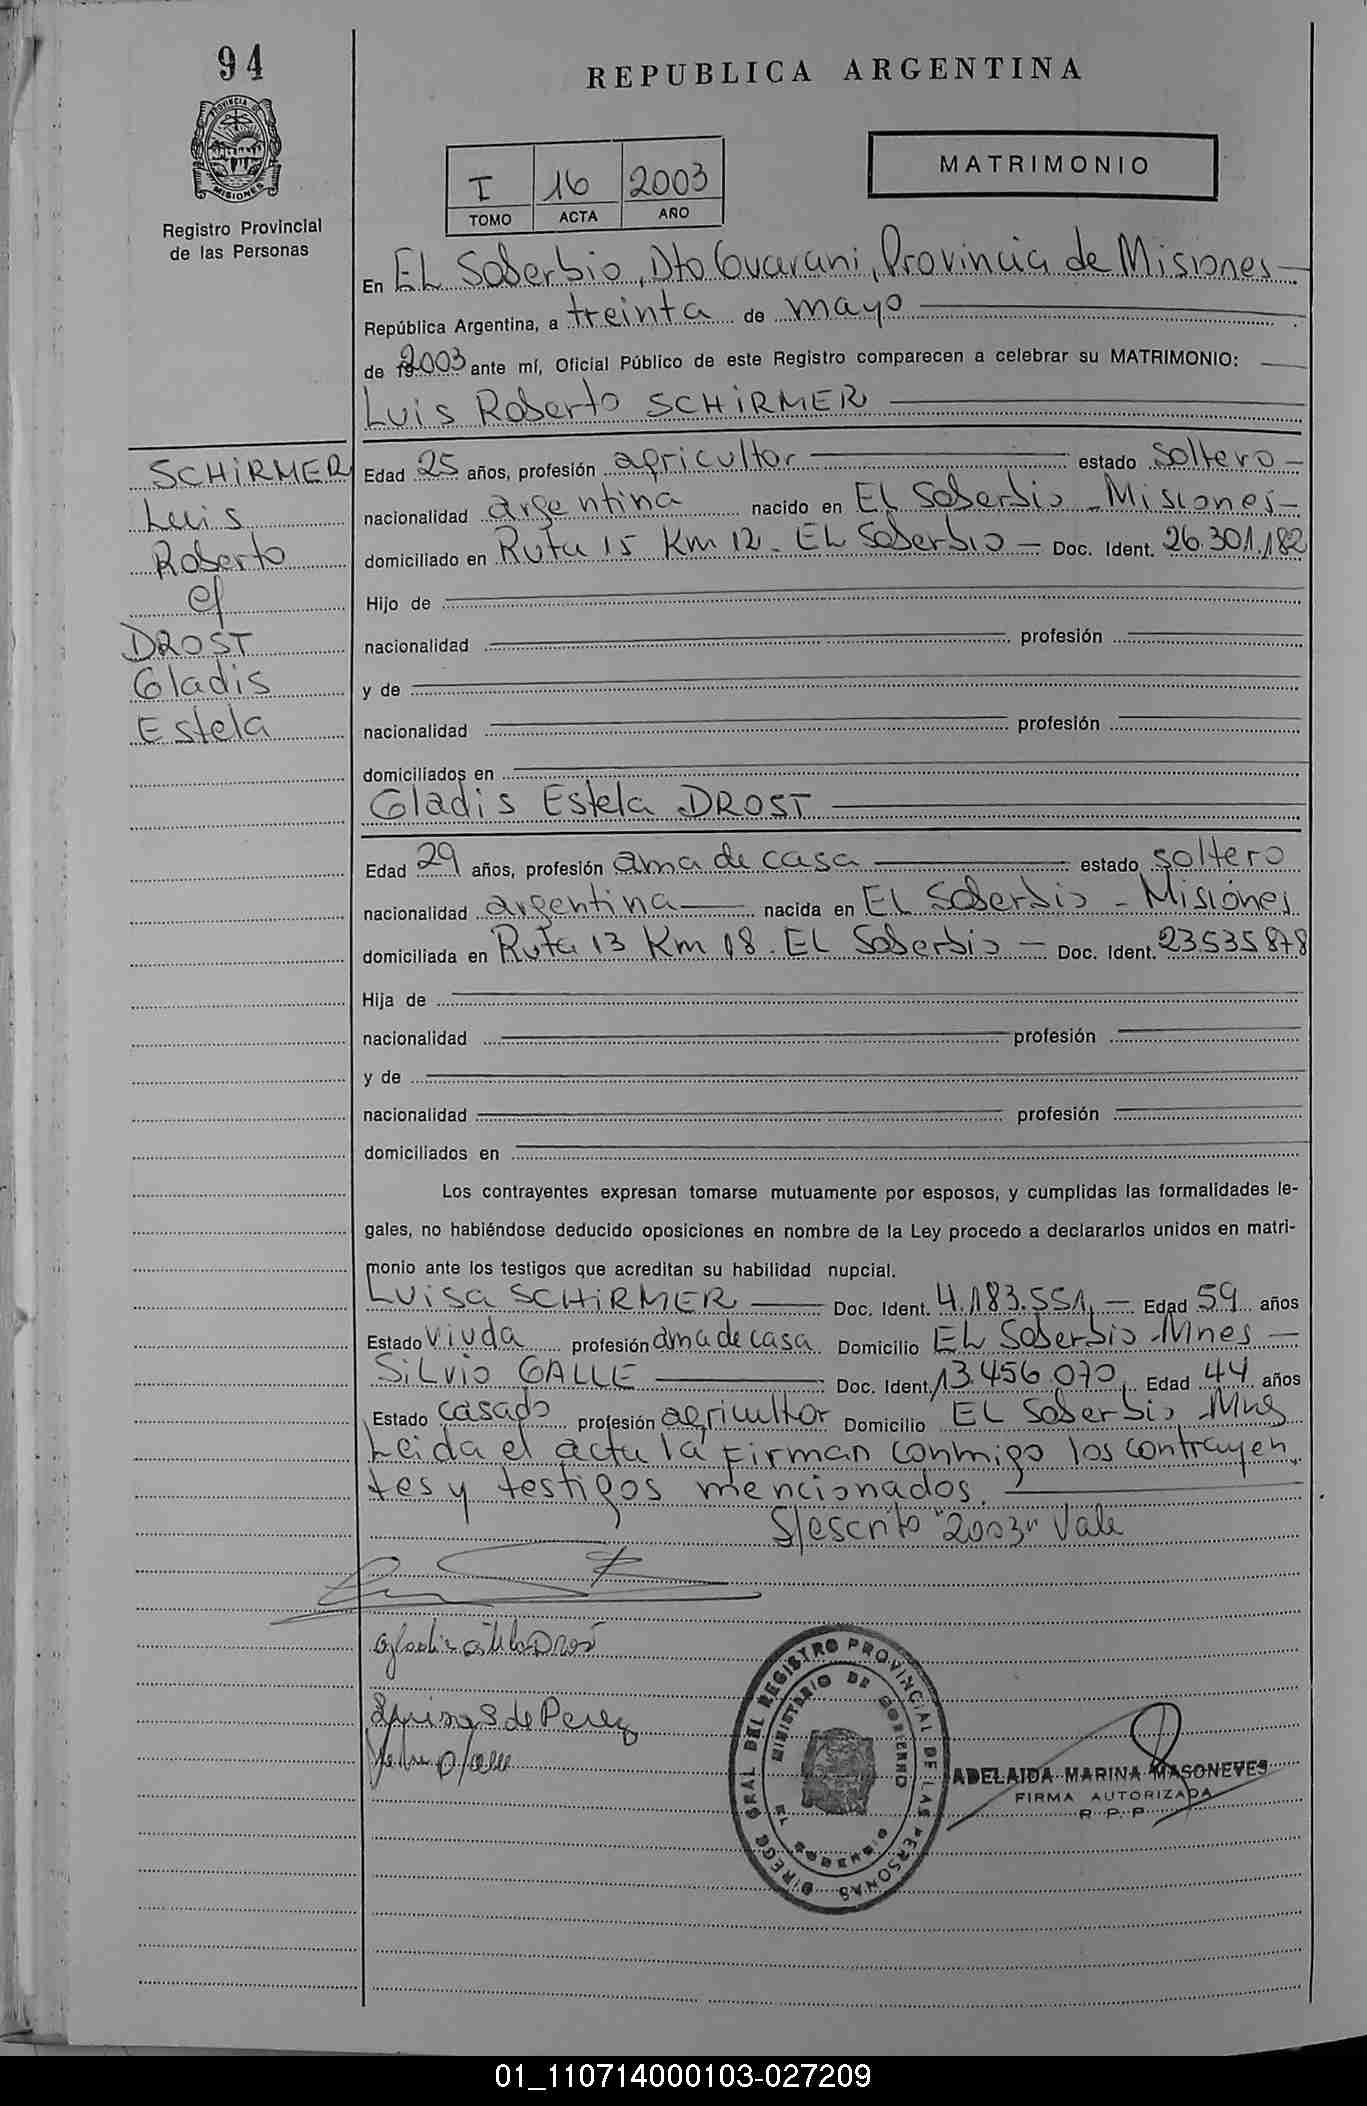 94
REPUBLICA ARGENTINA
PROVINCIA DE
MISIONES
Registro Provincial
de las Personas
I 16 2003
TOMO ACTA AÑO
MATRIMONIO
En EL Soberbio, Dto Guarani, Provincia de Misiones
República Argentina, a treinta de mayo
de 2003 ante mí, Oficial Público de este Registro comparecen a celebrar su MATRIMONIO:
Luis Roberto SCHiRMER
SCHiRMER
Luis
Roberto
c/
DROST
Gladis
Estela
Edad 25 años, profesión agricultor estado soltero
nacionalidad argentina nacido en El Soberbio - Misiones
domiciliado en Ruta 15 Km 12 - EL Soberbio - Doc. Ident. 26.301.182
Hijo de
nacionalidad profesión
y de
nacionalidad profesión
domiciliados en
Gladis Estela DROST
Edad 29 años, profesión ama de casa estado soltero
nacionalidad argentina nacida en EL Soberbio - Misiones
domiciliada en Ruta 13 Km 18 - EL Soberbio - Doc. Ident. 23.535.878
Hija de
nacionalidad profesión
y de
nacionalidad profesión
domiciliados en
Los contrayentes expresan tomarse mutuamente por esposos, y cumplidas las formalidades le-
gales, no habiéndose deducido oposiciones en nombre de la Ley procedo a declararlos unidos en matri-
monio ante los testigos que acreditan su habilidad nupcial.
Luisa SCHiRMER Doc. Ident. 4.183.551 - Edad 59 años
Estado viuda profesión ama de casa Domicilio EL Soberbio - Mnes -
SiLvio GALLE Doc. Ident. 13.456.070 Edad 44 años
Estado casado profesión agricultor Domicilio EL Soberbio - Mns
Leida el acta la firman conmigo los contrayen
tes y testigos mencionados.
S/escrito "2003" Vale
Gladis Estela Drost
S de Perez
DIRECC. GRAL. DEL REGISTRO PROVINCIAL DE LAS PERSONAS
MINISTERIO DE GOBIERNO
EL SOBERBIO
ADELAIDA MARINA MASONEVES
FIRMA AUTORIZADA
R. P. P.
01_110714000103-027209